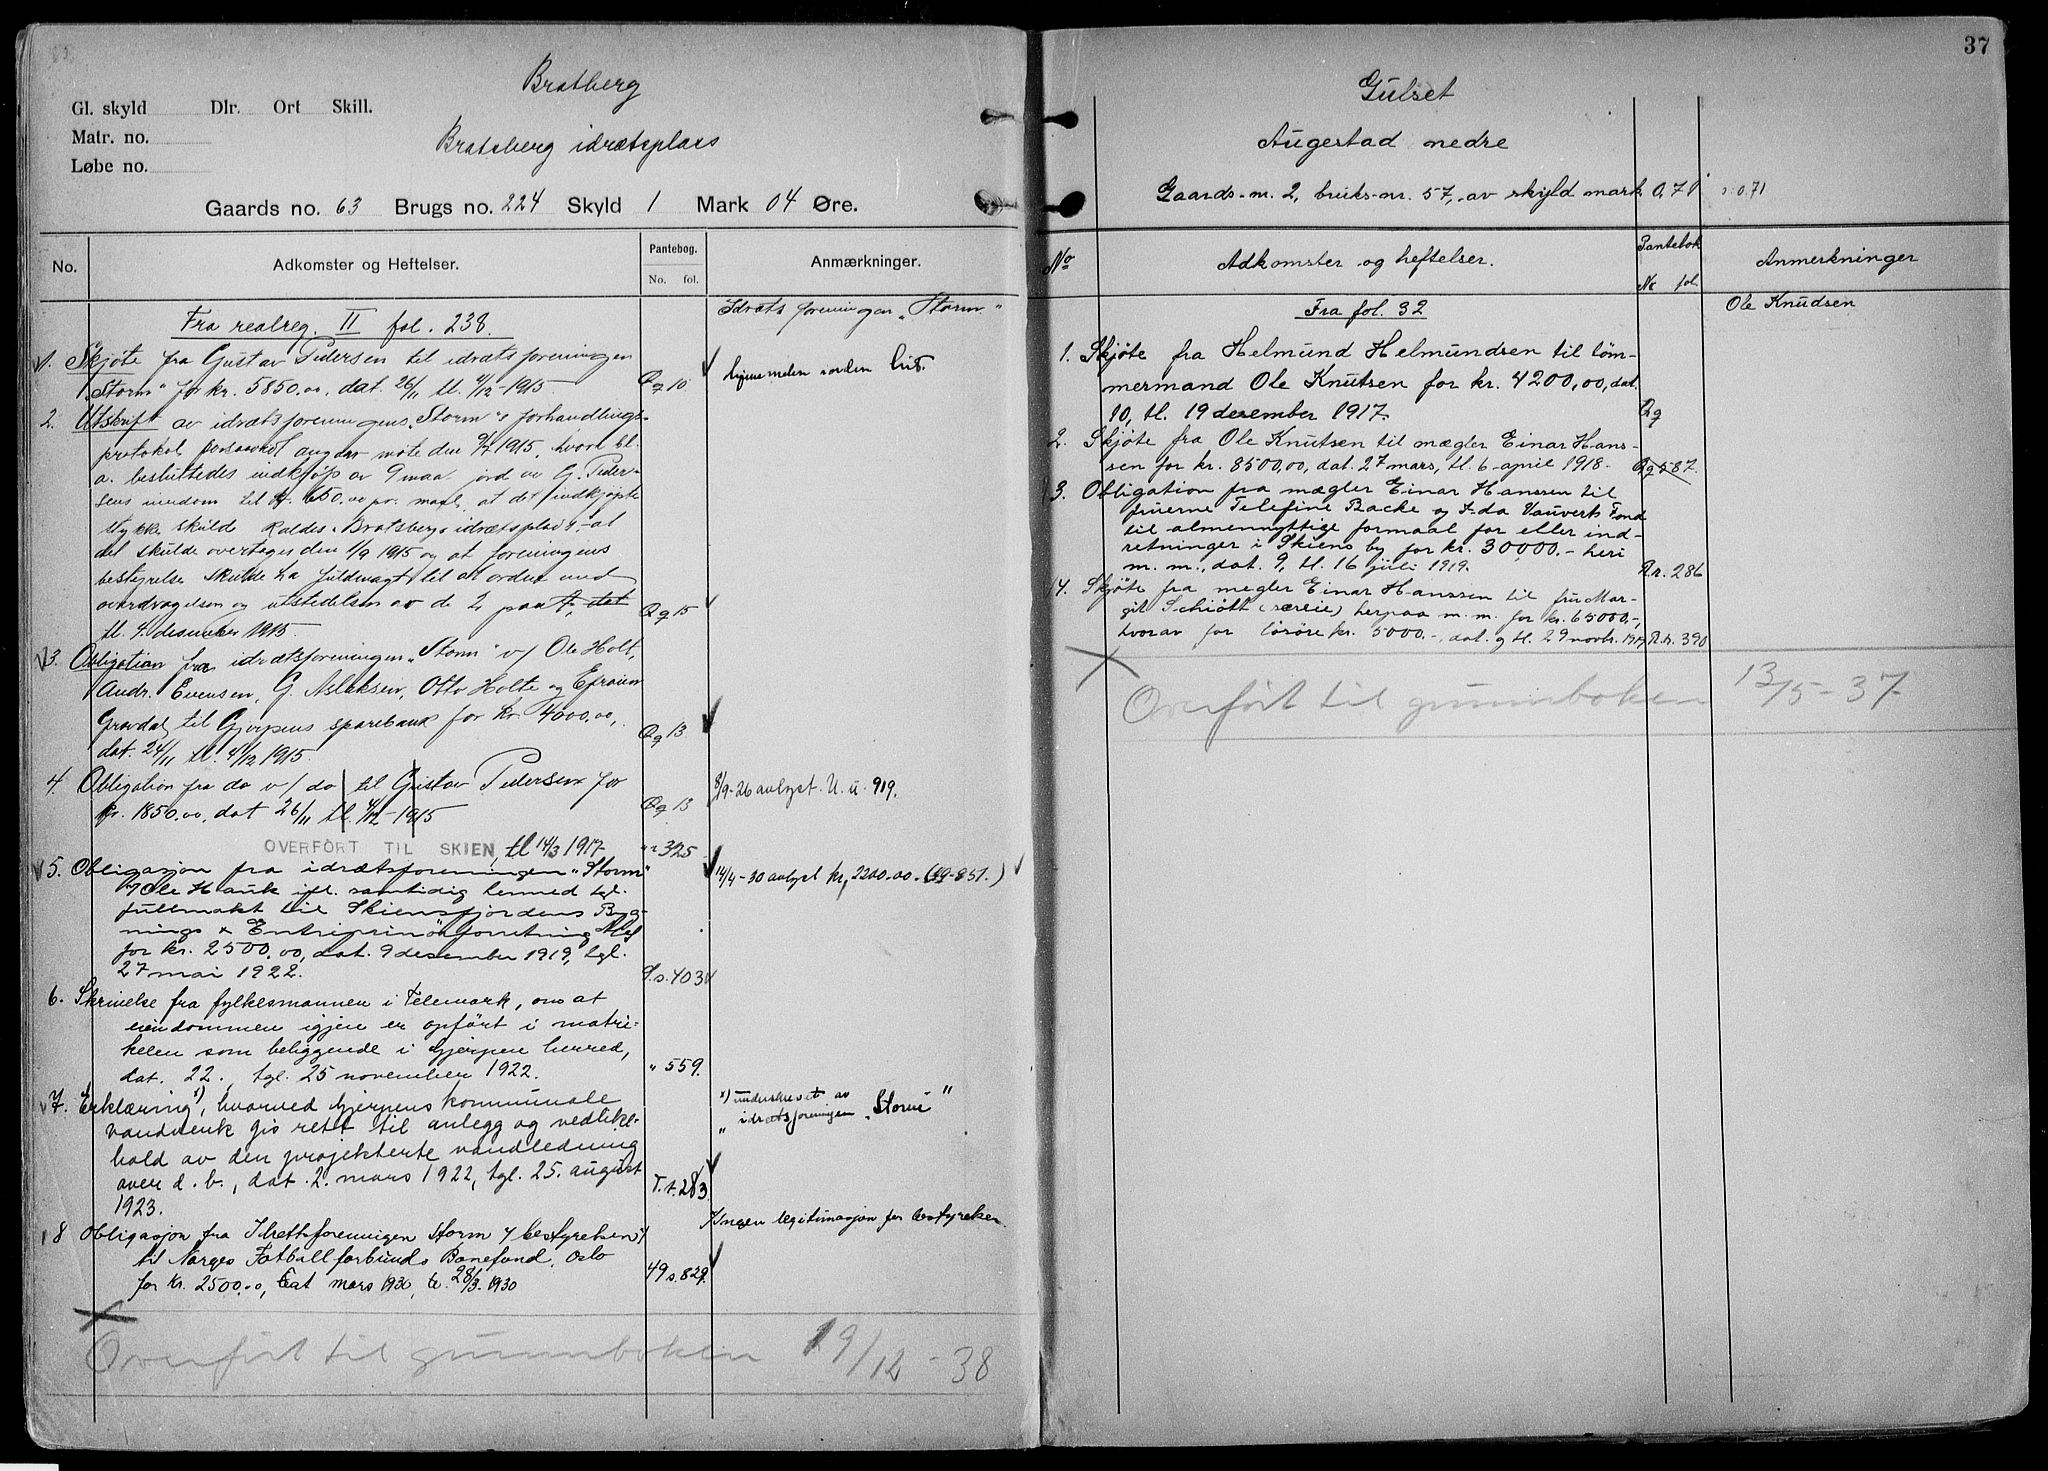 Bratberg
Gl. skyld Dlr. Ort Skill.
Matr. no.
Bratsberg idrætsplass
Løbe no.
Gaards no. 63 Brugs no. 224 Skyld 1 Mark 04 Øre.
No. Adkomster og Heftelser. Pantebog. No. fol. Anmærkninger.
Fra realreg. II fol. 238.
Idrætsforeningen „Storm"
1. Skjøte fra Gustav Pedersen til idrætsforeningen
„Storm" for kr. 5850.00, dat. 26/11 tl. 4/12-1915 Qq 10
2. Utskrift av idrætsforeningens „Storm"s forhandlings-
protokol møte den 1915, hvor bl.
a. besluttedes indkjøp av 9 maal jord av G. Peder-
sens eiendom til kr. 650.00 pr. maal, at det indkjøpte
stykke skulde kaldes „Bratsberg idrætsplads", at
det skulde overtages den 1/9 1915 og at foreningens
bestyrelse skulde ha fuldmagt til at ordne med
overdragelsen og utstedelsen av de 2 dat
tl. 4. desember 1915. Qq 15
3. Obligation fra idrætsforeningen „Storm" v/ Ole Holt,
Andr. Evensen, G. Aslaksen, Otto Holte og Efraim
Gravdal til Gjerpens sparebank for kr. 4000.00,
dat. 24/11 tl. 4/12 1915. Qq 13
4. Obligation fra do v/ do til Gustav Pedersen for
kr. 1850.00, dat 26/11 tl. 4/12-1915 Qq 13
8/9-26 avlyst. U. u. 919.
OVERFØRT TIL SKIEN, tl 14/3 1917 325
5. Obligasjon fra idrætsforeningen „Storm"
v/ Ole Hauk ifl. samtidig lenned tgl.
fullmakt til Skiensfjordens Byg-
nings & Entreprenørforretning A/S
for kr. 2500.00, dat. 9 desember 1919, tgl.
27 mai 1922. S.s. 403
14/4-30 avlyst kr. 2200.00. (49-851.)
6. Skrivelse fra fylkesmannen i Telemark, om at
eiendommen igjen er opført i matri-
kelen som beliggende i Gjerpen herred,
dat. 22., tgl. 25 november 1922. „ 559.
7. Erklæring x), hvorved Gjerpens kommunale
vandverk gis rett til anlegg og vedlike-
hold av den projekterte vandledning
over d. b., dat. 2. mars 1922, tgl. 25. august
1923. T.t. 283.
x) underskrevet av
„idrætsforeningen „Storm"
8 Obligasjon fra Idrettsforeningen Storm v/ bestyrelsen x)
til Norges Fotballforbunds Banefond, Oslo
for kr. 2500.00, dat mars 1930, tl. 28/3. 1930 49 s. 829.
x Ingen legitimasjon for bestyrelsen.
Overført til grunnboken 19/12-38
37
Gulset
Augestad nedre
Gaards-nr. 2, bruks-nr. 57, av skyld mark 0,71 0.71
No Adkomster og heftelser. Pantebok No fol. Anmerkninger
Fra fol. 32
Ole Knudsen
1. Skjøte fra Helmund Helmundsen til tøm-
mermand Ole Knutsen for kr. 4200,00, dat.
10, tl. 19 desember 1917. Qq
2. Skjøte fra Ole Knutsen til mægler Einar Hans-
sen for kr. 8500,00, dat. 27 mars, tl. 6 april 1918. Qq 587
3. Obligation fra mægler Einar Hanssen til
fruerne Telefine Backe og Ida Vauverts Fond
til almennyttige formaal for eller ind-
retninger i Skiens by for kr. 30,000.- heri
m. m., dat. 9, tl. 16 juli 1919. R.r. 286
4. Skjøte fra megler Einar Hanssen til fru Mar-
git Schiøtt (særeie) herpaa m.m. for kr. 65000.-,
hvorav for løsøre kr. 5000.-, dat. og tl. 29 novbr. 1919 R.r. 390
Overført til grunnboken 13/5-37